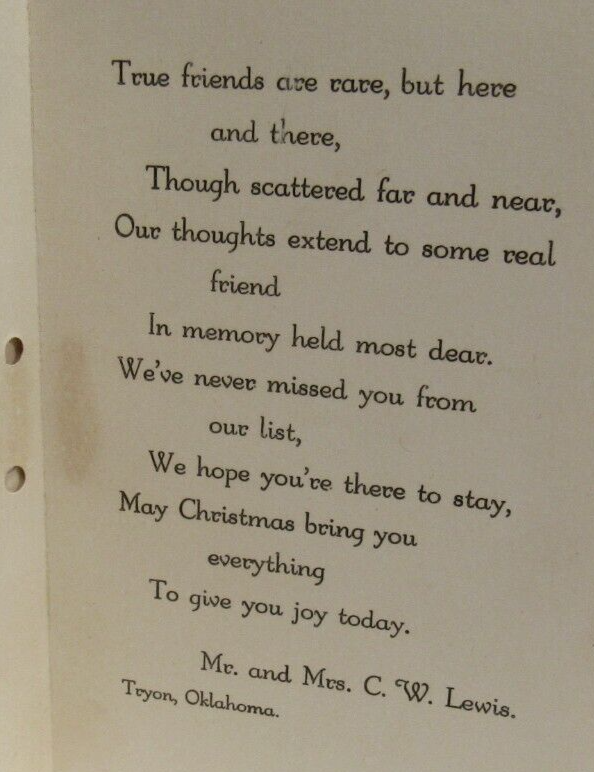 True friends are rare, but here
and there,
Though scattered far and near,
Our thoughts extend to some real
friend
In memory held most dear.
We've never missed you from
our list,
We hope you're there to stay,
May Christmas bring you
everything
To give you joy today.
Mr. and Mrs. C. W. Lewis.
Tryon, Oklahoma.